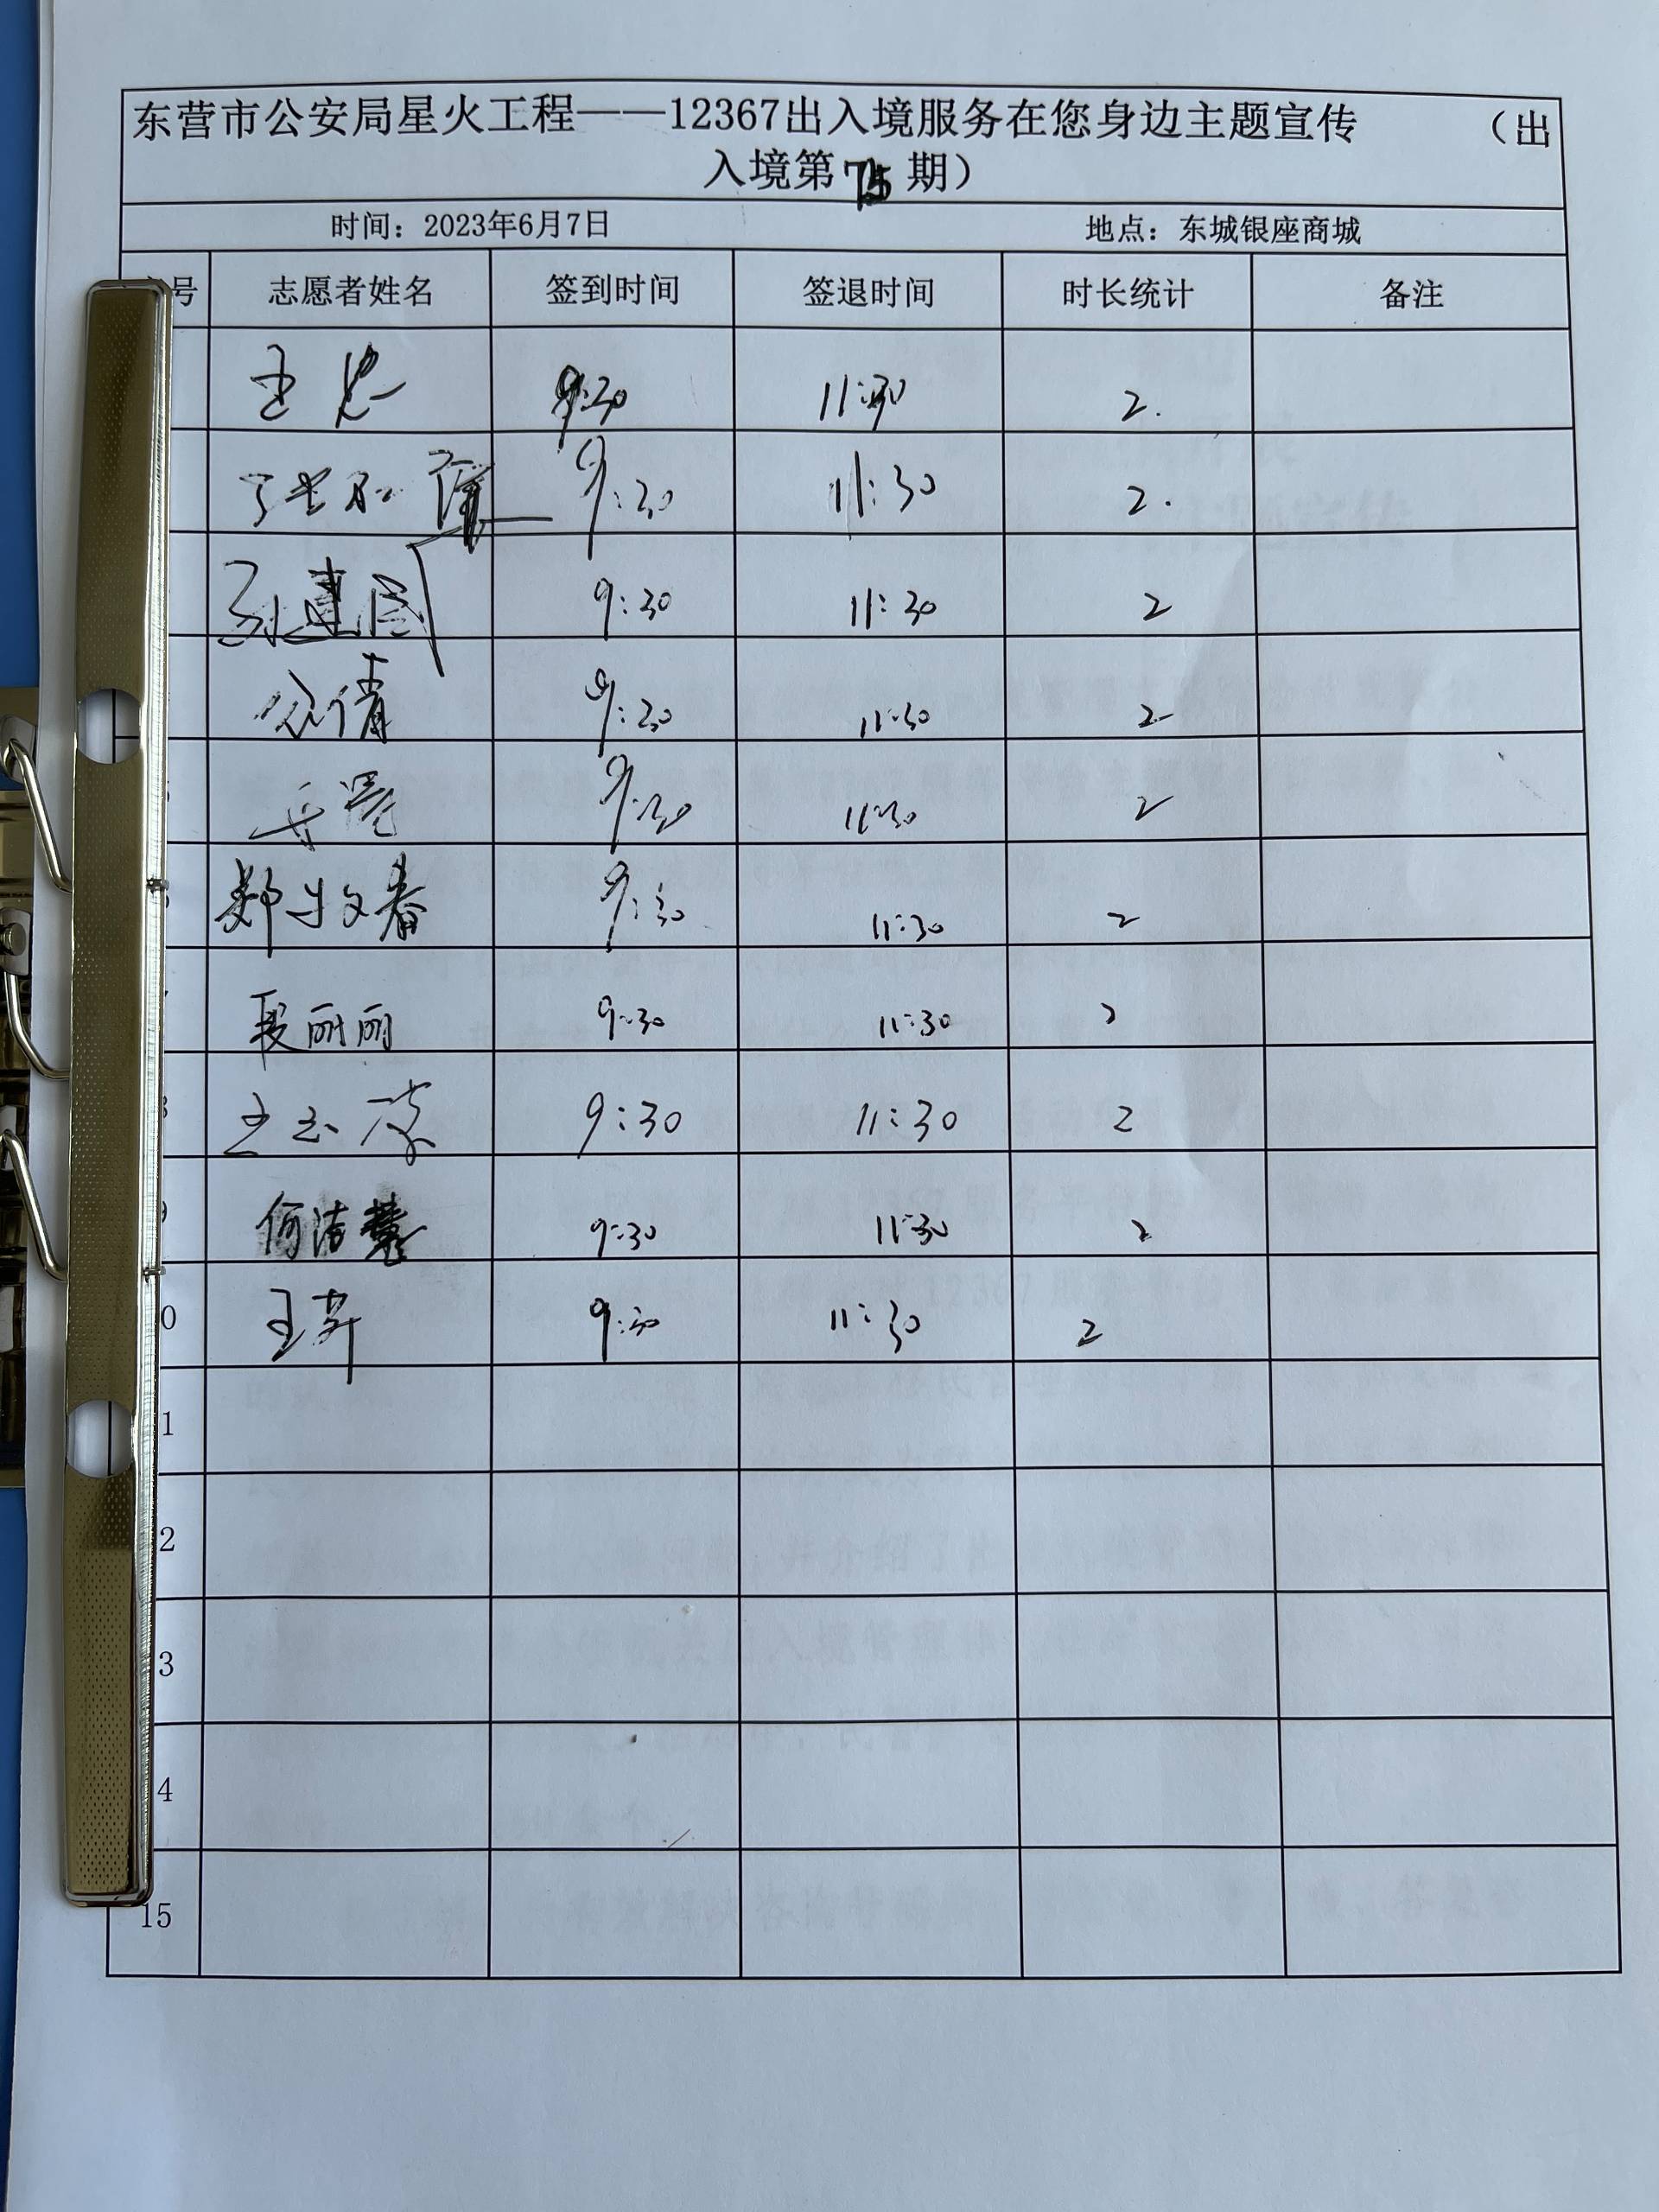 东营市公安局星火工程——12367出入境服务在您身边主题宣传 （出
入境第75期）
时间：2023年6月7日 地点：东城银座商城
号 志愿者姓名 签到时间 签退时间 时长统计 备注
王 9:30 11:30 2.
9:30 11:30 2.
孙建国 9:30 11:30 2
倩 9:30 11:30 2
9:30 11:30 2
郑牧春 9:30 11:30 2
段丽丽 9:30 11:30 2
王玉 9:30 11:30 2
9 何洁慧 9:30 11:30 2
0 王 9:30 11:30 2
1
2
3
4
15